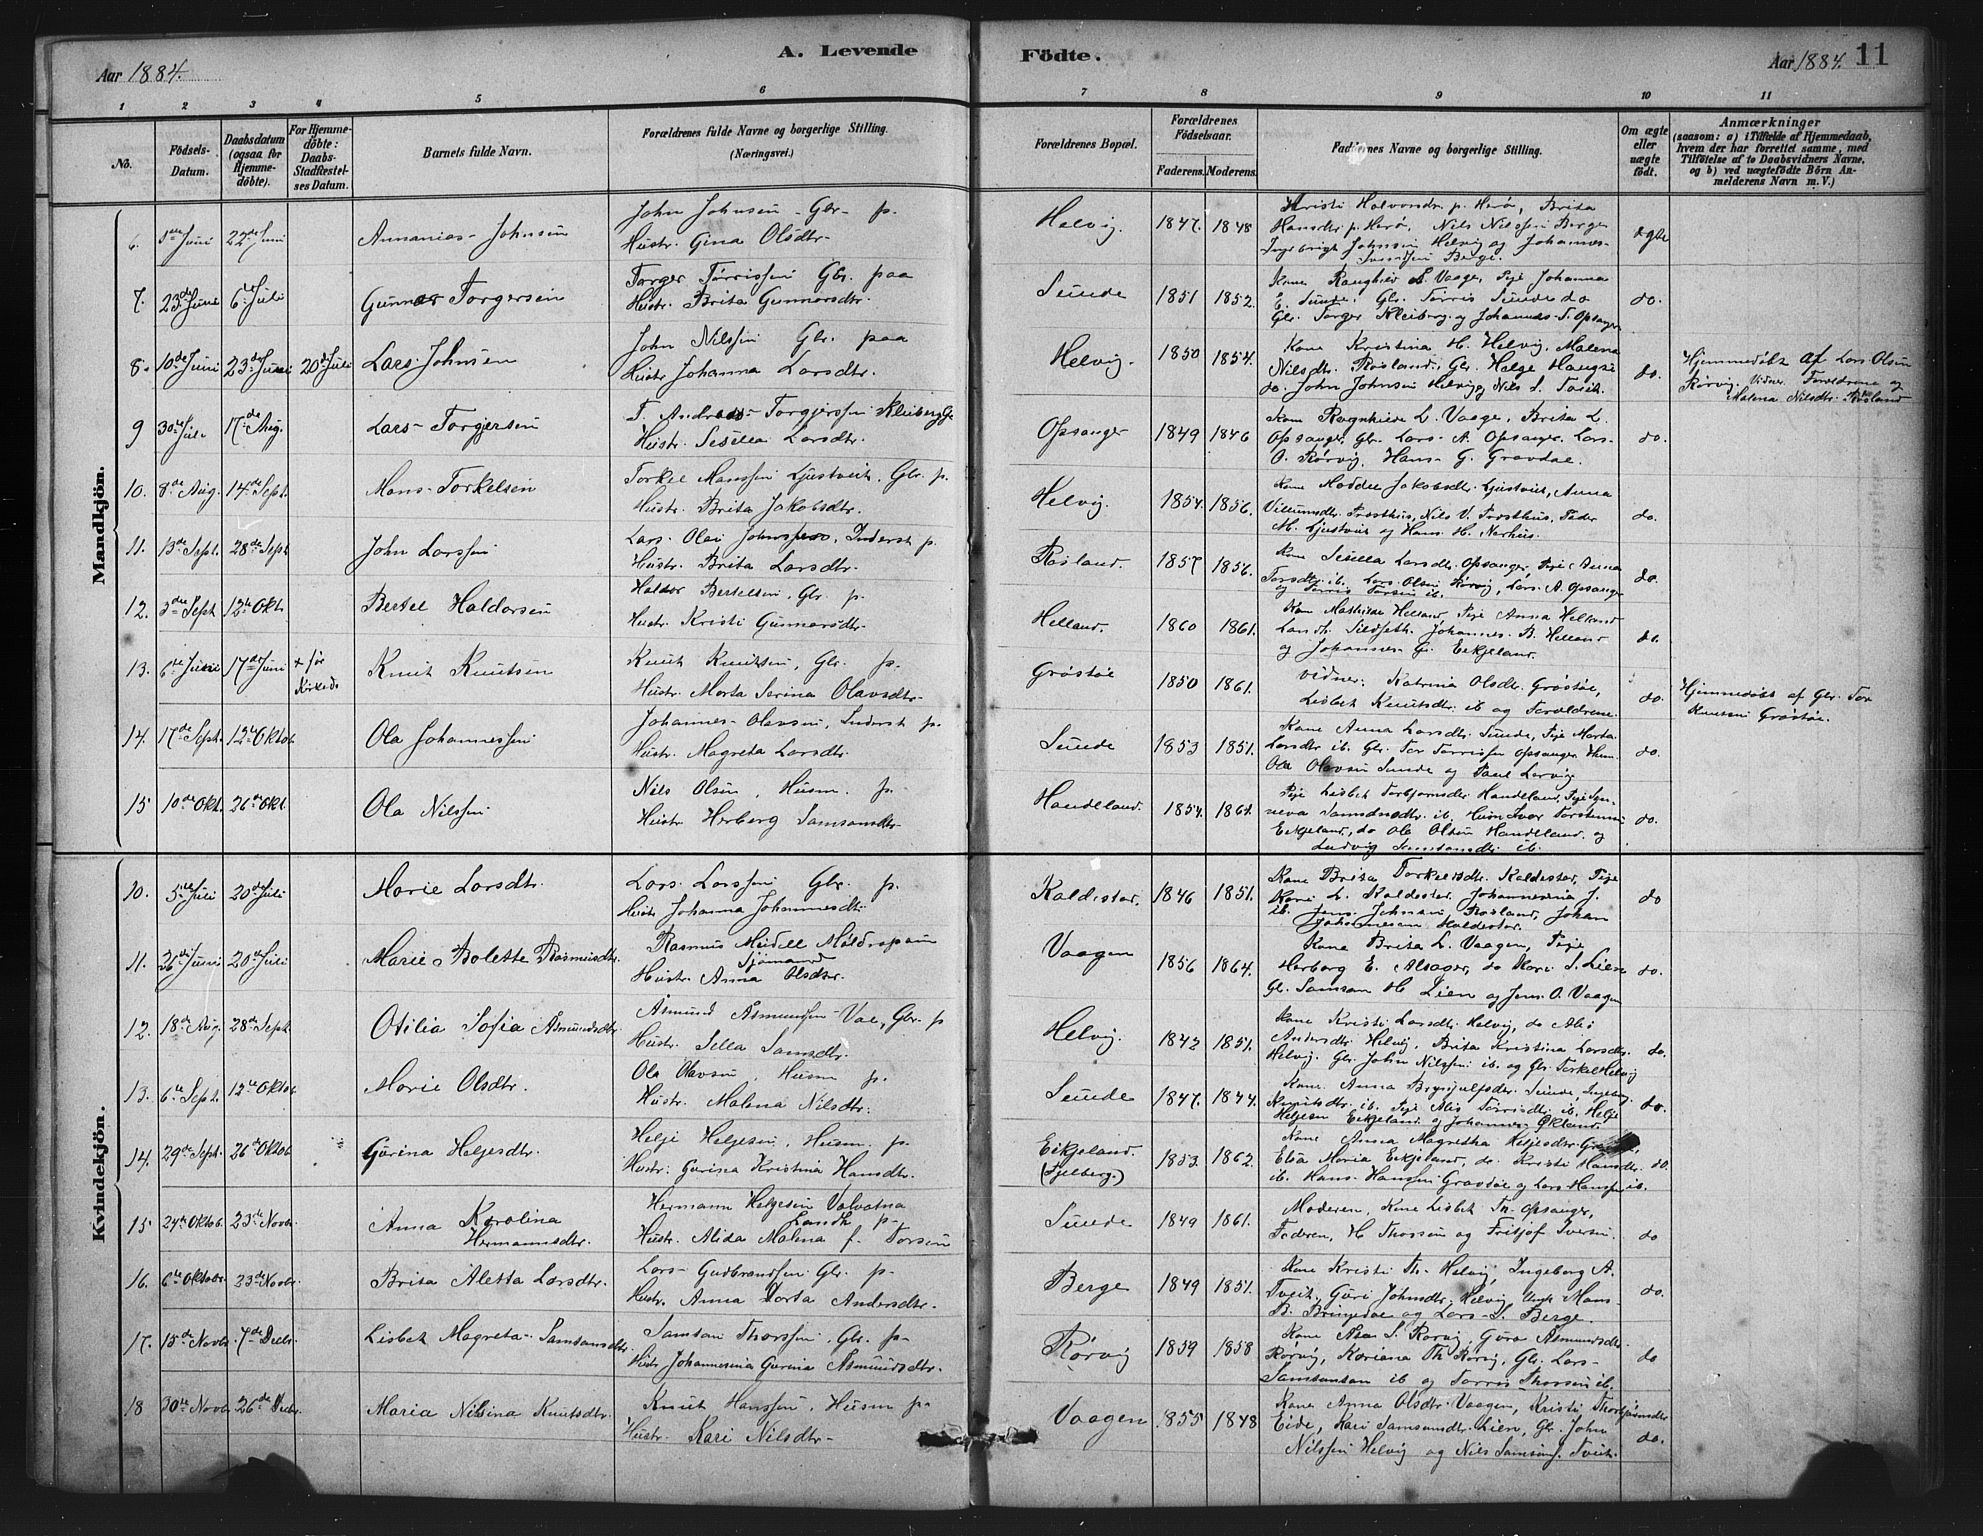 A. Levende Födte.
Aar 1884.
Aar 1884. 11
1 2 3 4 5 6 7 8 9 10 11
No.
Födsels-Datum.
Daabsdatum (ogsaa for Hjemme-döbte).
For Hjemme-döbte: Daabs-Stadfæstel-ses Datum.
Barnets fulde Navn.
Forældrenes fulde Navne og borgerlige Stilling. (Næringsvei.)
Forældrenes Bopæl.
Forældrenes Födselsaar.
Faderens. Moderens.
Faddernes Navne og borgerlige Stilling.
Om ægte eller uægte födt.
Anmærkninger
(saasom: a) i Tilfælde af Hjemmedaab, hvem der har forrettet samme, med Tilföielse af to Daabsvidners Navne, og b) ved uægtefödte Börn An-melderens Navn m. V.)
Mandkjön.
6. 22de Juni Annanias Johnsen John Johnsen Gbr. p. Hustr. Gina Olsdtr. Helvig. 1847. 1848 Kristi Halvorsdr. p. Herø, Brita Hansdtr. p. Herø, Nils Nilssen Berge Ingebrigt Johnsen Helvig og Johannes Berge. ægte
7. 23de Juni 6te Juli Gunnar Torgersen Torger Tørrissen Gbr. paa Hustr. Brita Gunnarsdtr. Sunde 1851 1852. Kone Ranghild L. Vaage, Pige Johanna E. Sunde, Gbr. Tørris Sunde do Gbr. Torger Kleiberg og Johannes T. Opsanger do.
8. 10de Juni 23de Juni 20de Juli Lars Johnsen John Nilssen Gbr. paa Hustr. Johanna Larsdtr. Helvig. 1850 1854. Kone Kristina H. Helvig, Malena Nilsdtr. Røsland, Gbr. Helge Haugse do. John Johnsen Helvig og Nils S. Tveit. do. Hjemmedøbt af Lars Olsen Rørvig. Vidner Foreldrene og Malena Nilsdtr. Røsland
9 30te Juli 17de Aug. Lars Torgersen T. Andreas Torgersen Kleiberg Hustr. Sesella Larsdtr. Opsanger 1849 1846 Kone Ragnhilde L. Vaage, Brita L. Opsanger, Gbr. Lars A. Opsanger, Lars O. Rørvig, Hans G. Gravdae. do.
10. 8de Aug. 14de Sept. Mons Torkelsen Torkel Monssen Ljustveit, Gbr. p. Hustr. Brita Jakobsdtr. Helvig. 1854. 1856. Kone Jakobsdtr. Ljustveit, Anna Villumsdtr. Frosthus, Nils V. Frosthus, Peder M. Ljustveit og Hans H. Nerhus. do.
11. 13de Sept. 28de Sept. John Larssen Lars Olai Johnssen, Inderst p. Hustr. Brita Larsdtr. Røsland. 1857 1856. Kone Larsdtr. Opsanger, Pige Anna Torsdtr. ib. Lars Olsen Rørvig, Lars A. Opsanger og Tørris Torsen ib. do.
12. 3die Sept. 12te Okt. Bertel Haldorsen Haldor Bertelsen, Gbr. p. Hustr. Kristi Gunnarsdtr. Helland. 1860 1861. Kone Mathilde Helland, Pige Anna Helland Landh. Johannes B. Helland og Johannes G. Eikjeland. do.
13. 6te Juni 17de Juni + før Kirked. Knut Knutsen Knut Knutsen, Gbr. p. Hustr. Marta Serina Olavsdtr. Grøstøe 1850 1861. Vidner: Katrina Olsdr. Grøstøe, Lisbet Knutsdtr. ib og Foreldrene. do. Hjemmedøbt af Gbr. Tor Knutsen Grøstøe.
14. 17de Sept. 12te Oktob. Ola Johannessen Johannes Olavsen, Inderst p. Hustr. Magreta Larsdtr. Sunde 1853 1851. Kone Anna Larsdtr. Sunde, Pige Marta Larsdtr ib. Gbr. Tor Tørrissen Opsanger Husm. Ola Olavsen Sunde og Paul Lervig do.
15 10de Okt. 26de Okt. Ola Nilssen Nils Olsen, Husm. p. Hustr. Herborg Samsonsdtr. Handeland. 1854. 1864. Pige Lisbet Torbjørnsdtr. Handeland, Pige Syn-neva Samsonsdtr. ib. Husm Iver Torstensen Eikjeland, do Ole Olsen Handeland og Ludvig ib. do.
Kvindekjön.
10. 5te Juli 20de Juli Marie Larsdtr. Lars Larssen Gbr. p. Hustr Johanna Johannesdtr. Kaldestad. 1846 1851. Kone Brita Torkelsdtr. Kaldestad, Pige Kari L. Kaldestad, Johannesina J. ib. Jens Johnsen Røsland, Johan Johannesen Kaldestad. do
11. 26de Juni 20de Juli Marie Bolette Rasmusdtr. Rasmus Meidell Møldrupsen Sjømand Hustr. Anna Olsdtr. Vaagen 1856 1864. Kone Brita L. Vaagen, Pige Herborg E. Alsager, do Kari S. Lien Gbr. Samson H. Lien og Jens O. Vaagen do.
12. 18de Aug. 28de Sept. Otilia Sofia Asmundsdtr. Asmund Asmundsen Vae, Gbr. p Hustr. Sella Samsdtr. Helvig. 1842 1851. Kone Kristi Larsdtr. Helvig, do Andersdtr. Helvig, Brita Kristina Larsdtr. Helvig. Gbr. John Nilssen ib. og Gbr. Torkel Helvig do.
13. 6te Sept. 12te Oktob. Marie Olsdtr. Ola Olavsen, Husm p. Hustr. Malena Nilsdtr. Sunde 1847. 1844. Kone Anna Brynjulfsdtr. Sunde, Ingeborg Knutsdtr. ib. Pige Tørrisdtr. ib. Helje Heljesen Eikjeland og Johannes Økland. do.
14. 29de Sept. 26de Oktob Gurina Heljesdtr. Helje Heljesen, Husm. p. Hustr. Gurina Kristina Hansdtr. Eikjeland. (Fjelberg.) 1853. 1862. Kone Anna Magretha Heljesdtr. Elsa Maria Eikjeland, do. Kristi Hansdtr. ib. Hans Hansen Gravdae og Lars Hanssen ib. do.
15 24de Oktob. 23de Novbr. Anna Karolina Hermannsdtr. Hermann Helgesen Valvatna Landh. p. Hustr. Alida Malena f. Torsen Sunde 1849 1861. Moderen, Kone Lisbet Th. Opsanger, Faderen, H. Thorsen og Fritjof Iversen. do
16. 6te Oktobr. 23de Novbr. Brita Aletta Larsdtr. Lars Gudbrandsen Gbr. p. Hustr. Anna Dorta Andersdtr. Berge 1849 1851. Kone Kristi Th. Helvig, Ingeborg A. Tveit, Guri Johnsdtr. Helvig, Ungk. Mons B. Bringedae og Lars S. Berge. do.
17. 15de Novbr. 7de Decbr. Lisbet Magreta Samsonsdtr. Samson Thorssen, Gbr. p. Hustr. Johannesina Gurina Asmundsdtr. Rørvig 1859 1858 Kone Asa S. Rørvig, Guro Asmundsdtr. Rørvig, Karina Th. Rørvig, Gbr. Lars Samsonson ib og Tørris Thorssen ib. do
18 30te Novbr. 26de Decbr. Maria Nilsina Knutsdtr. Knut Hanssen, Husm p. Hustr. Kari Nilsdtr. Vaagen 1855 1848 Kone Anna Olsdtr. Vaagen, Kristi Thorbjørnsdtr Eide, Kari Samsonsdtr. Lien, Gbr. John Nilssen Helvig og Nils Samsons. Tveit. do.